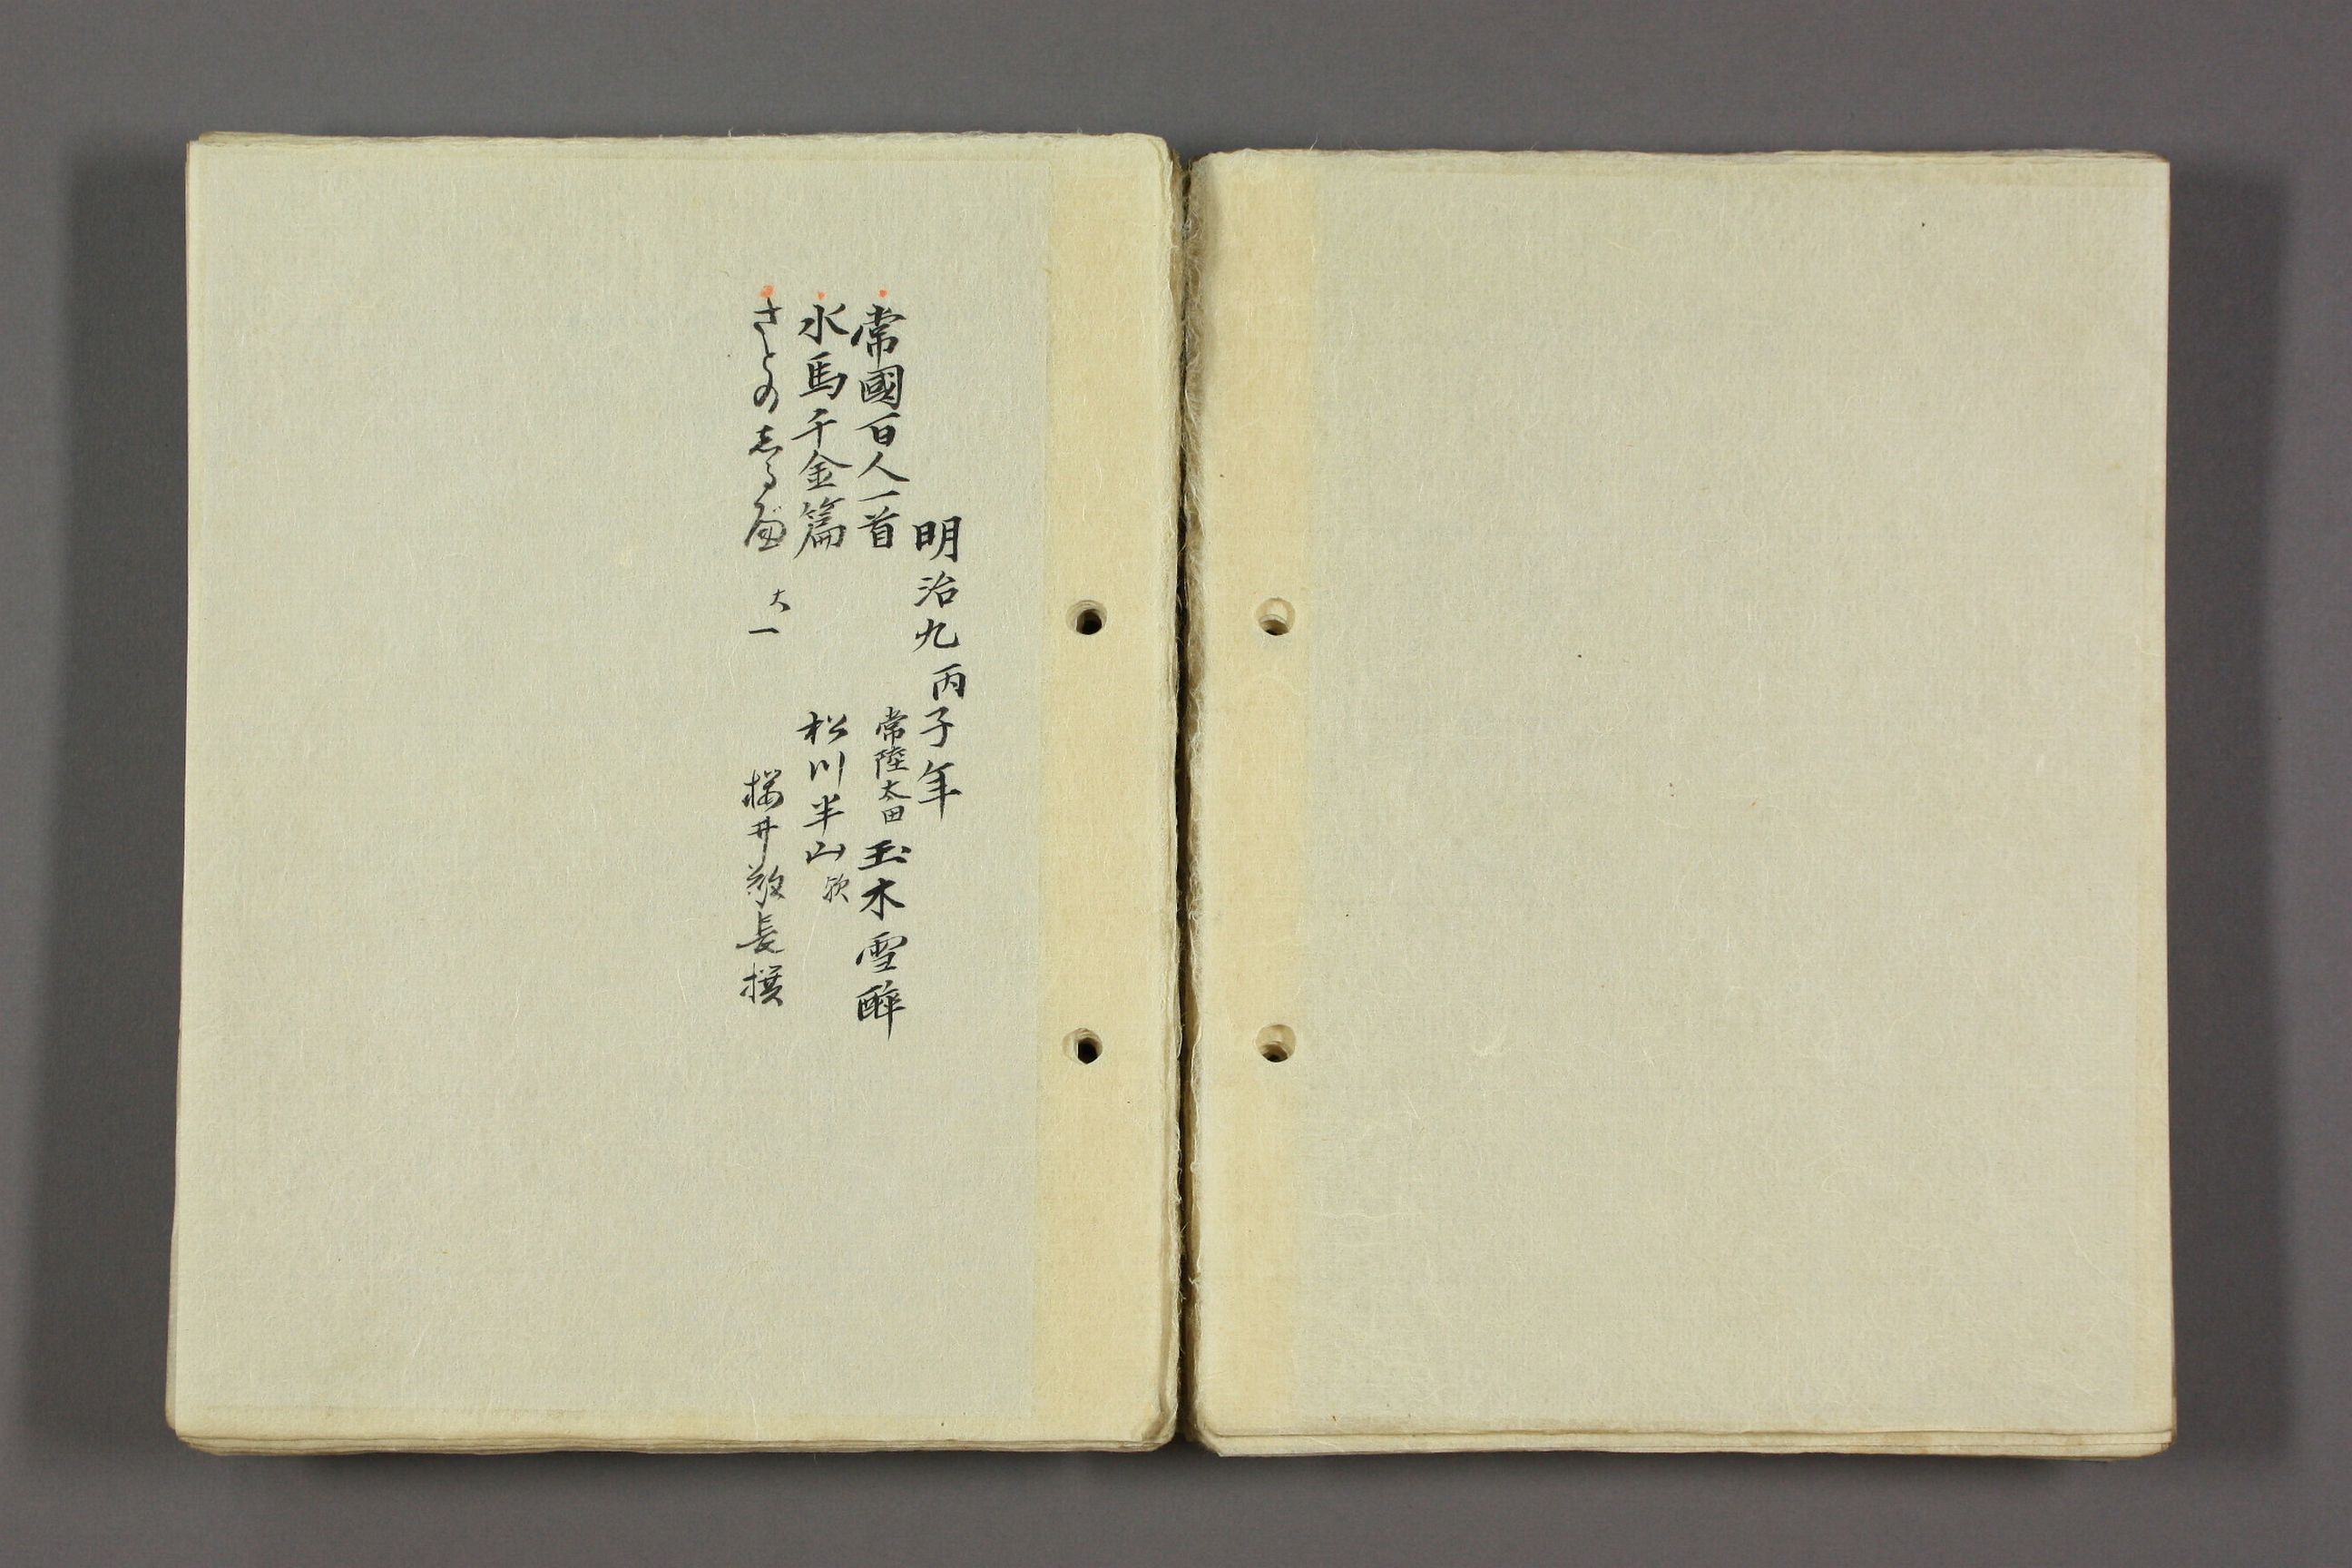 明治九丙子年
常國百人一首 常陸太田 玉木雪酔
水馬千金篇 松川半山 欤
さとのしるべ 大一 桜井敬長撰